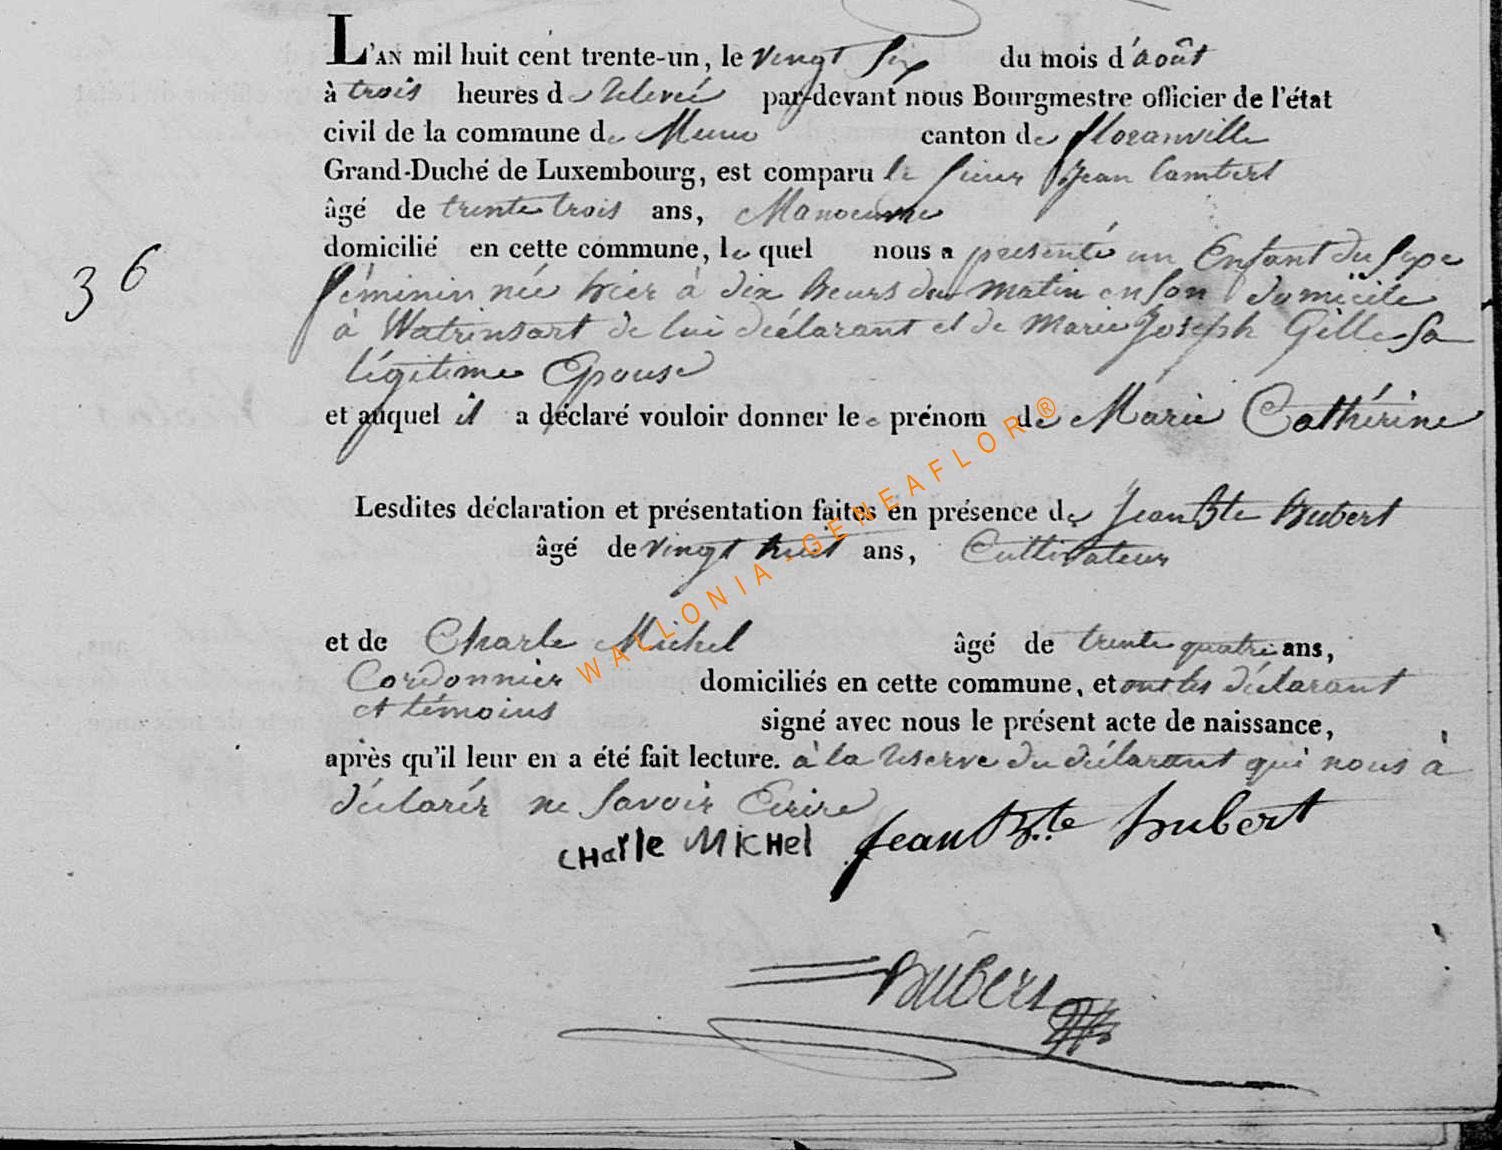 L'AN mil huit cent trente-un, le vingt six du mois d'août
à trois heures de relevée par-devant nous Bourgmestre officier de l'état
civil de la commune de Muno canton de floranville
Grand-Duché de Luxembourg, est comparu le sieur Jean Lambert
âgé de trente trois ans, Manoeuvre
domicilié en cette commune, le quel nous a presenté un Enfant du sexe
36
féminin née hier à dix heurs du matin en son domicile
à Watrinsart de lui déclarant et de Marie Joseph Gille sa
légitime Epouse
et auquel il a déclaré vouloir donner le prénom de Marie Cathérine
Lesdites déclaration et présentation faites en présence de Jean Bte hubert
âgé de vingt huit ans, Cultivateur
et de Charle Michel âgé de trente quatre ans,
Cordonnier domiciliés en cette commune, et ont les déclarant
et témoins signé avec nous le présent acte de naissance,
après qu'il leur en a été fait lecture. à la reserve du déclarant qui nous à
déclarér ne savoir Ecrire
CHarle MICHel Jean Bte hubert
hubert
WALLONIA-GENEAFLOR®